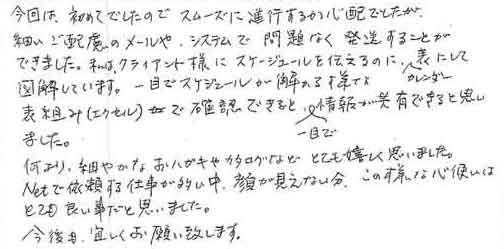 今回は、初めてでしたので スムーズに進行するか心配でしたが、
細かいご配慮のメールや、システムで 問題なく 発送することが
できました。私は、クライアント様に スケージュールを伝えるのに、表にして
カレンダー
図解しています。一目でスケジュールが解かる様な
表組み(エクセル)で確認できると、情報が共有できると思い
一目で
ました。
何より、細やかなおハガキやカタログなど とても嬉しく思いました。
Netで依頼する仕事が多い中、顔が見えない分、この様な心使いは
とても良い事だと思いました。
今後も、宜しくお願い致します。